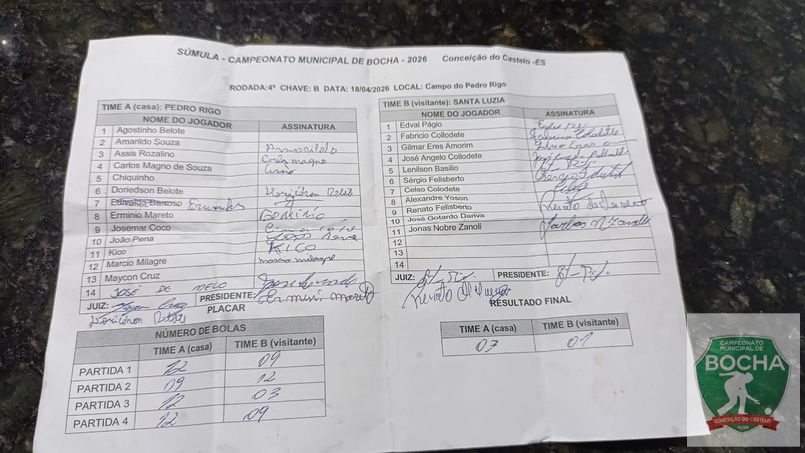 SÚMULA - CAMPEONATO MUNICIPAL DE BOCHA - 2026 Conceição do Castelo -ES
RODADA:4ª CHAVE: B DATA: 18/04/2026 LOCAL: Campo do Pedro Rigo
TIME A (casa): PEDRO RIGO
NOME DO JOGADOR ASSINATURA
1 Agostinho Belote
2 Amarildo Souza Amarildo
3 Assis Rozalino
4 Carlos Magno de Souza Carlos magno
5 Chiquinho
6 Doriedson Belote
7 Edivaldo Barcoso
8 Erminio Mareto
9 Josemar Coco
10 João Pena
11 Kico KICO
12 Marcio Milagre marcio milagre
13 Maycon Cruz
14 JOSÉ DE MELO
JUIZ: PRESIDENTE: Erminio Mareto
PLACAR
NÚMERO DE BOLAS
TIME A (casa) TIME B (visitante)
PARTIDA 1 12 09
PARTIDA 2 09 12
PARTIDA 3 12 03
PARTIDA 4 12 09
TIME B (visitante): SANTA LUZIA
NOME DO JOGADOR ASSINATURA
1 Edval Págio
2 Fabricio Collodete
3 Gilmar Eres Amorim
4 José Angelo Collodete
5 Lenilson Basilio
6 Sérgio Felisberto
7 Celso Colodete
8 Alexandre Yoson
9 Renato Felisberto
10 José Gotardo Dariva
11 Jonas Nobre Zanoli
12
13
14
JUIZ: PRESIDENTE:
RESULTADO FINAL
TIME A (casa) TIME B (visitante)
03 01
CAMPEONATO
MUNICIPAL DE
BOCHA
CONCEIÇÃO DO CASTELO
2026